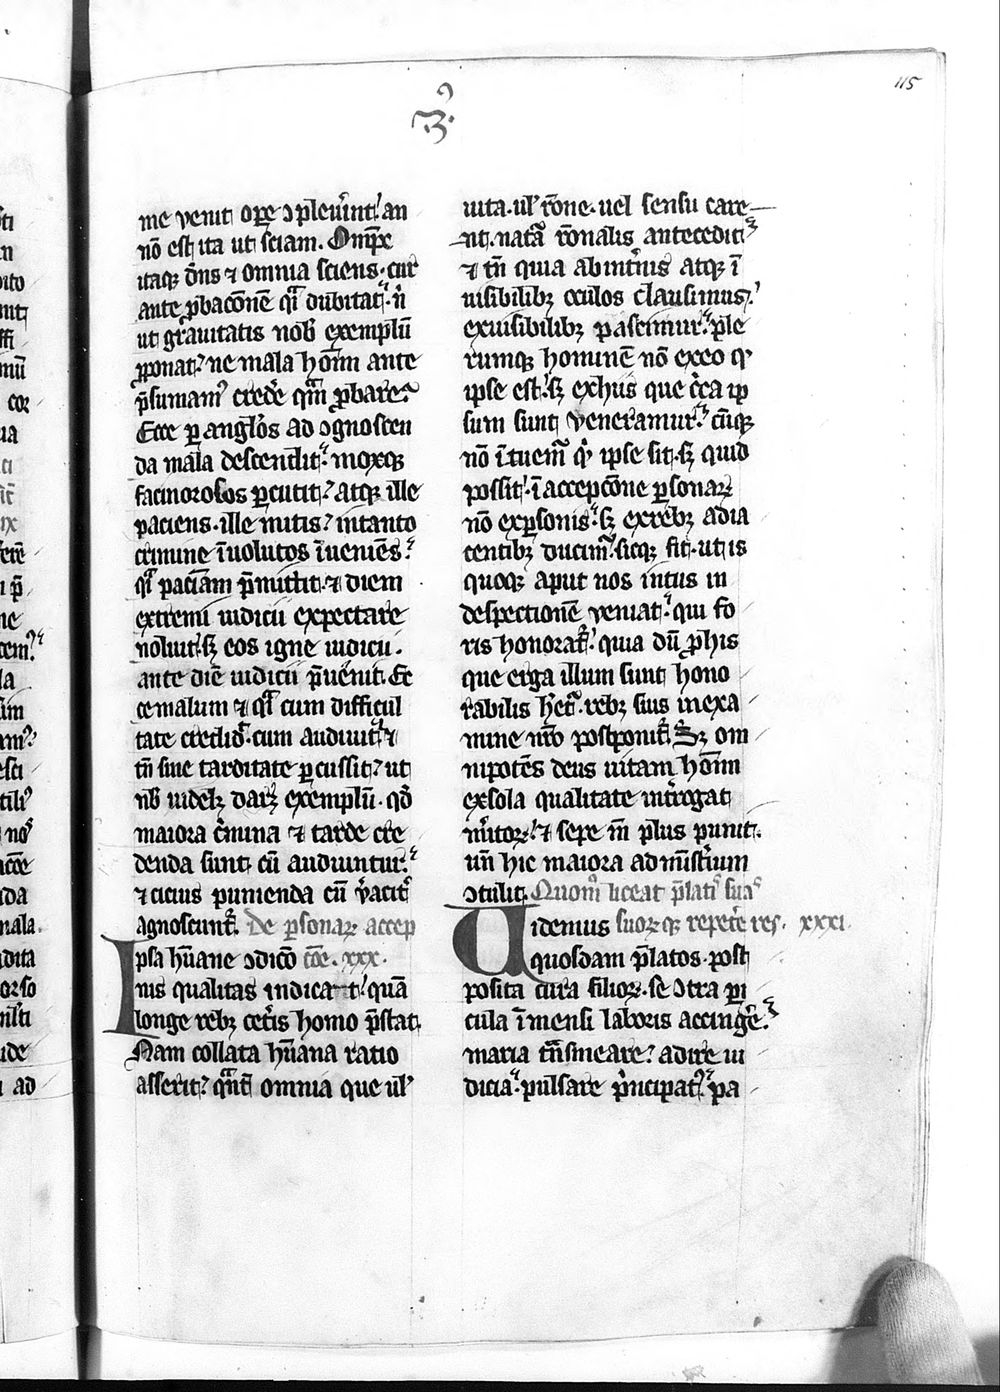 115
.3.
me venit oꝑe ↄpleu̕int.᷎ an
nō est ita ut sciam. Omp̄s
itaqꝫ dn̄s ⁊ omnia sciens. cur
ante ꝓbac̄onē qͣı dubitat. n̄
ut grauitatis nob̄ exemplū
ꝓponat? ne mala ho̅im ante
p̄sumamꝰ crede̕ qͣm ꝓbare?
Ecce ꝑ angl̕os ad ↄgnoscen
da mala descendit. moxqꝫ
facinorosos ꝑcutit? atqꝫ ille
paciens. ille mitis? intanto
crimine īuolutos īueniēs?
qͣı paciam p̄mittit. ⁊ diem
extremi iudicii expectare
noluit. sꝫ eos igne iudicii.
ante diē iudicii p̄uēit. Ec
ce malum ⁊ qͣı cum difficul
tate credid̕. cum audiuit. ⁊
tn̄ sine tarditate ꝑcussit? ut
nob̄ uidelꝫ daꝝ exemplū. qd̕
maiora c̕mina ⁊ tarde cre
denda sunt cū audiuntur.
⁊ cicius punienda cū v̕acit̕
agnoscunt̕. De ꝑsonaꝝ accep
psa hūane ↄdic̄o c̄oe. xxx.
nis qualitas indicat. quā
longe rebꝫ cet̕is homo p̄stat.
Nam collata hūana ratio
asserit? qͣnt̄ omnia que ul̕
uita. ul̕ r̄one. uel sensu care
nt. natā r̄onalis antecedit.
⁊ tn̄ quia abint̕nis atqꝫ ī
uisibilibꝫ oculos clausimus.
exuisibilibꝫ pascimur. ple
rumqꝫ hominē nō exeo qͥ
ipse est. sꝫ exhiis que c̕ca ip
sum sunt veneramur. cūqꝫ
nō ītuemͬ qͥ ipse sit. sꝫ quid
possit. ī accepc̄one ꝑsonaꝝ
nō exꝑsonis. sꝫ exrebꝫ adia
centibꝫ ducimͬ. sicqꝫ fit. ut is
quoqꝫ aput nos intus in
despectionē veniat. qui fo
ris honorat̕. quia dū ꝓhis
que erga illum sunt hono
rabilis het̕. rebꝫ suis inexa
mine nr̄o postponit̕. Sꝫ om
nipotēs deus uitam ho̅im
exsola qualitate int̕rogat
m̕itoꝝ. ⁊ sepe īn plus punit.
un̄ hic maiora ad mīst̕ium
ↄtulit. Quom̊ liceat p̄latis suaꝰ
Uidemus suoꝝ qꝫ repete̕ res. xxxi.
quosdam p̄latos. post
posita cura filioꝝ. se ↄtra ꝑi
cula īmensi laboris accinge̕.
maria tͣnsmeare? adire iu
dicia. pulsare pͥncipatꝰ. pa